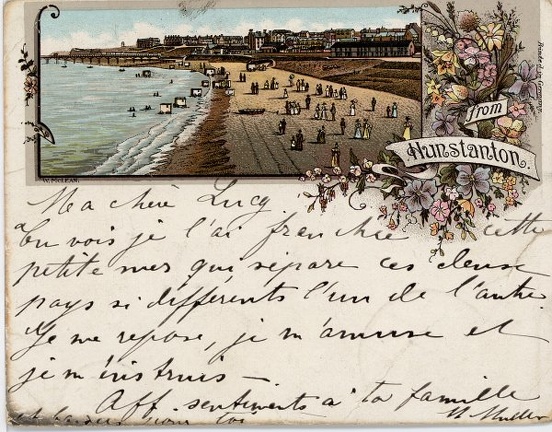 from
Hunstanton.
Printed in Germany.
W. McLean.
Ma chère Lucy
Tu vois je l'ai franchie cette
petite mer qui sépare ces deux
pays si différents l'un de l'autre.
Je me repose, je m'amuse et
je m'instruis —
Aff. sentiments à ta famille
pour toi
M. Muller